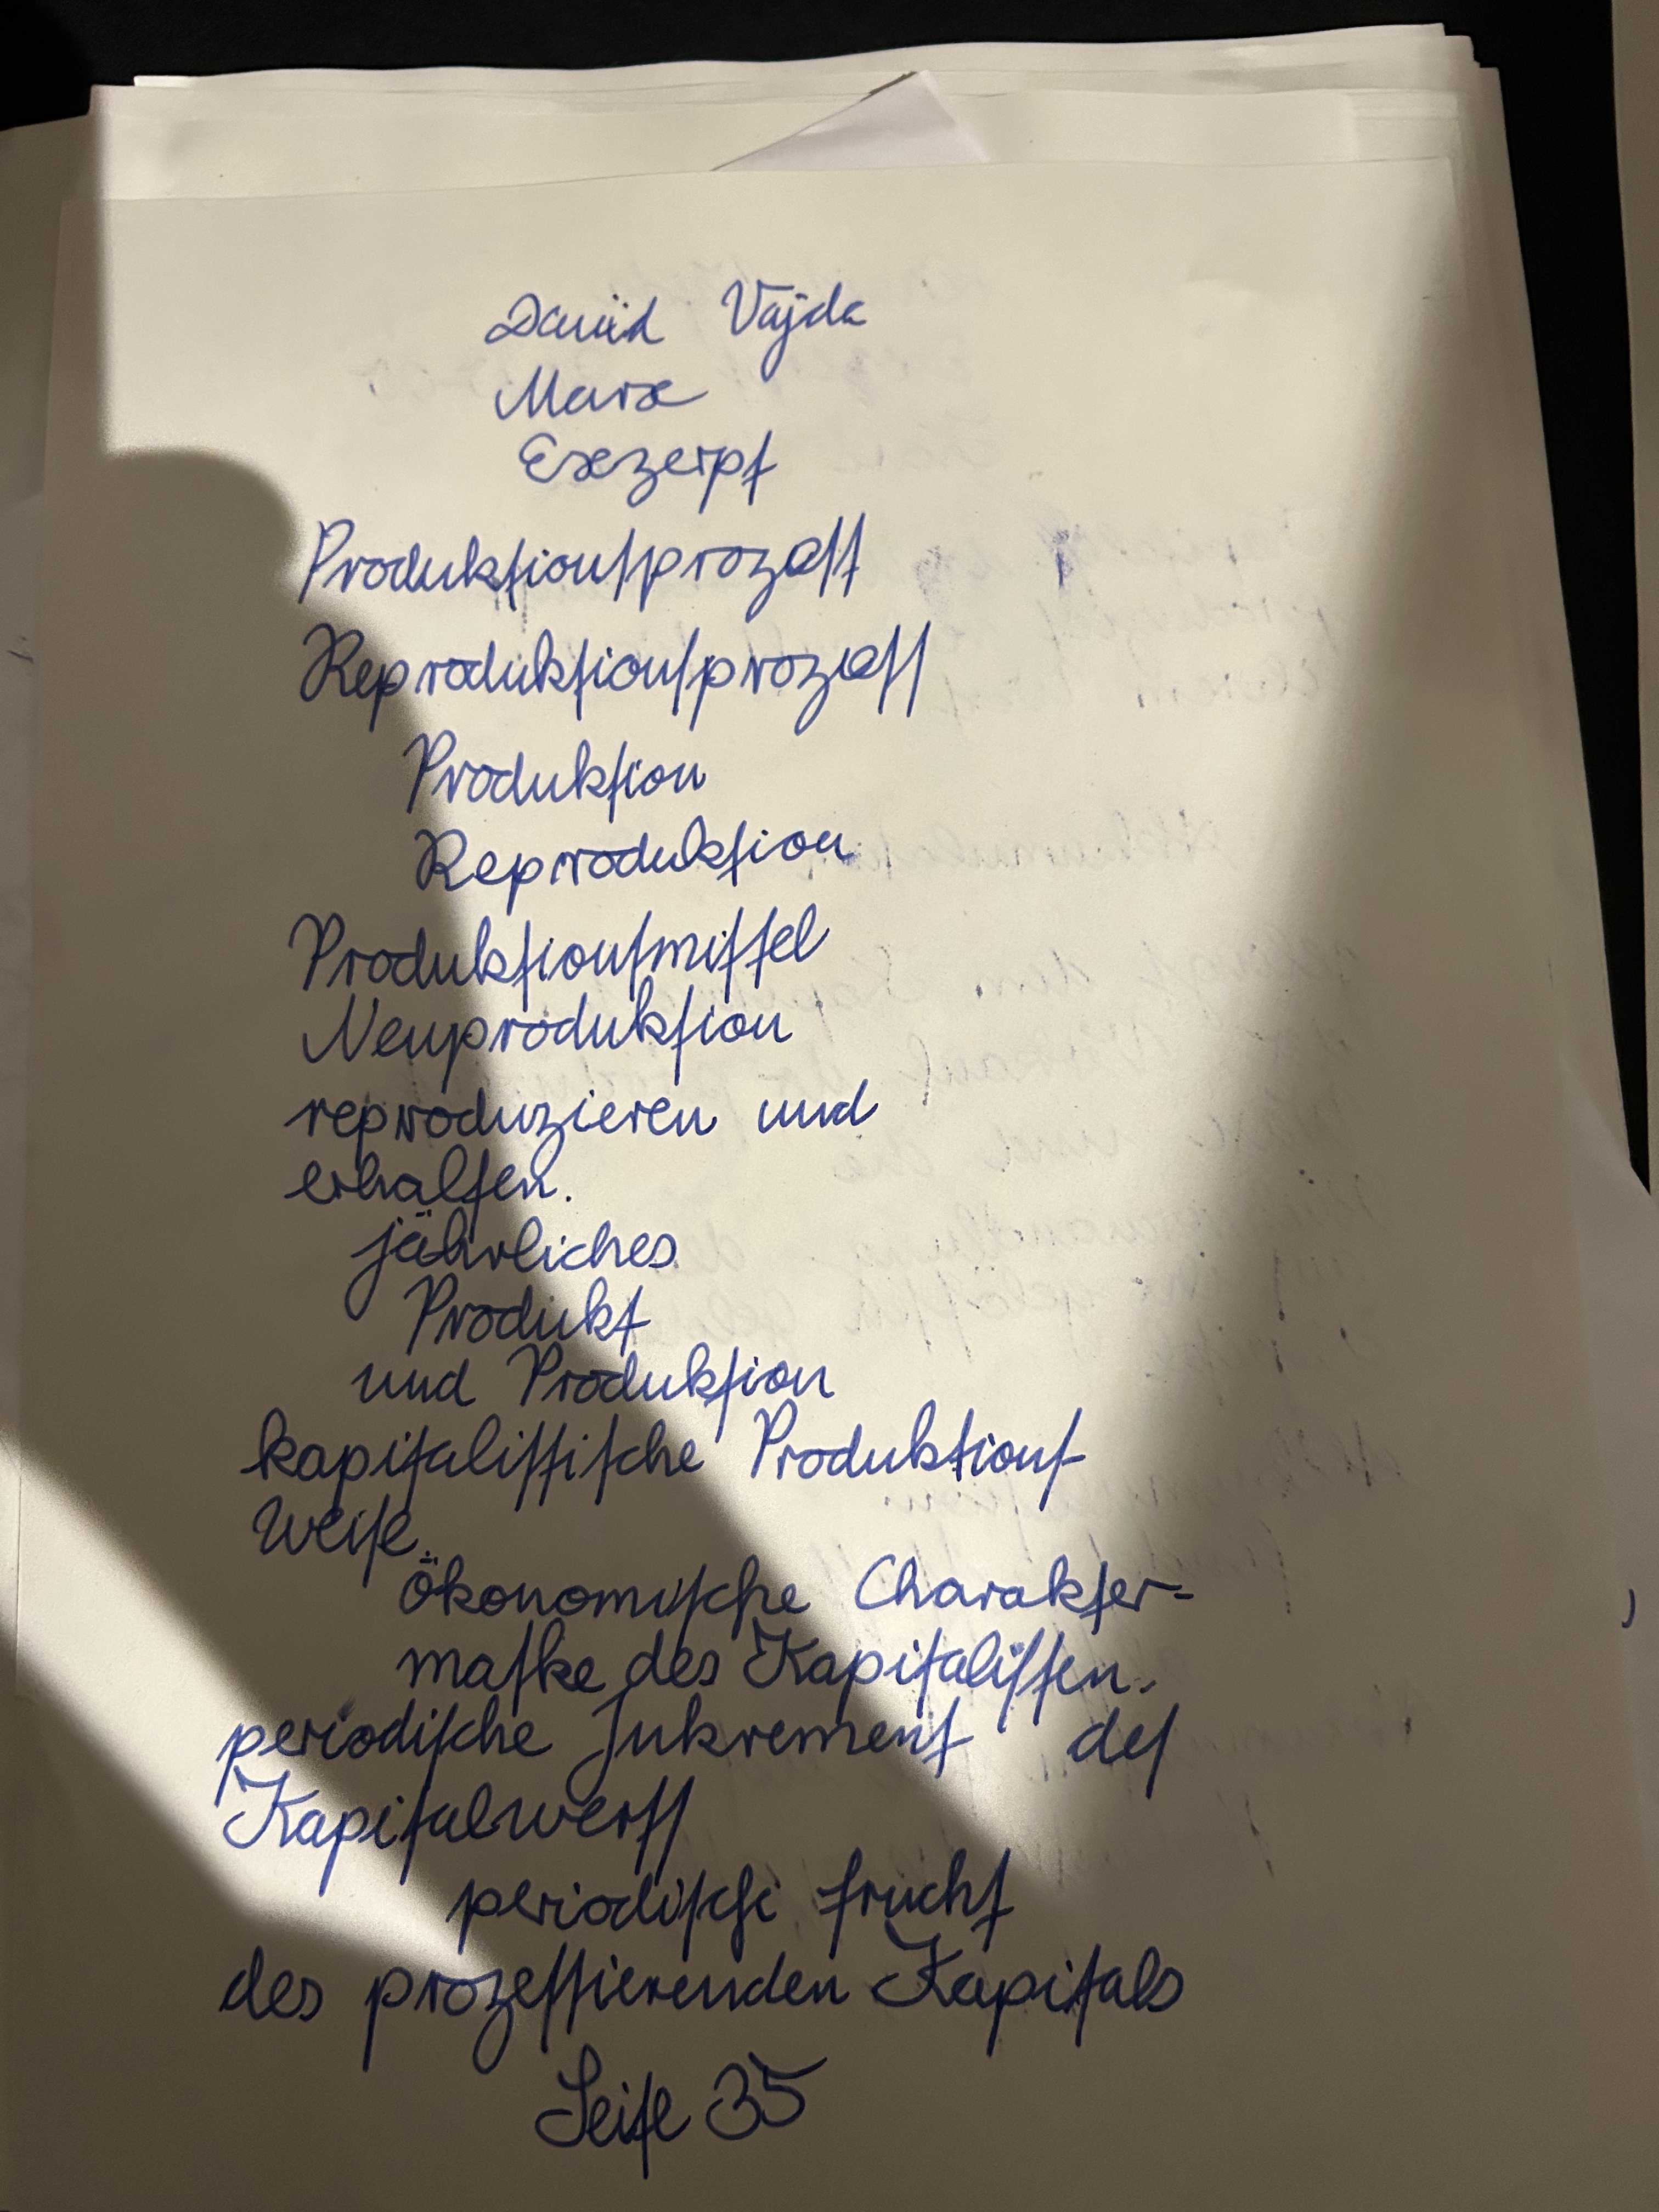 David Vajda
Marx
Exezerpt
Produktionſprozeſſ
Reproduktionſprozeſſ
Produktion
Reproduktion
Produktionſmittel
Neuproduktion
reproduzieren und
erhalten.
jährliches
Produkt
und Produktion
kapitaliſtiſche Produktionſ
Weiſe.
ökonomiſche Charakter-
maſke des Kapitaliſten.
periodiſche Inkrement deſ
Kapitalwertſ
periodiſche Frucht
des prozeſſierenden Kapitals
Seite 35